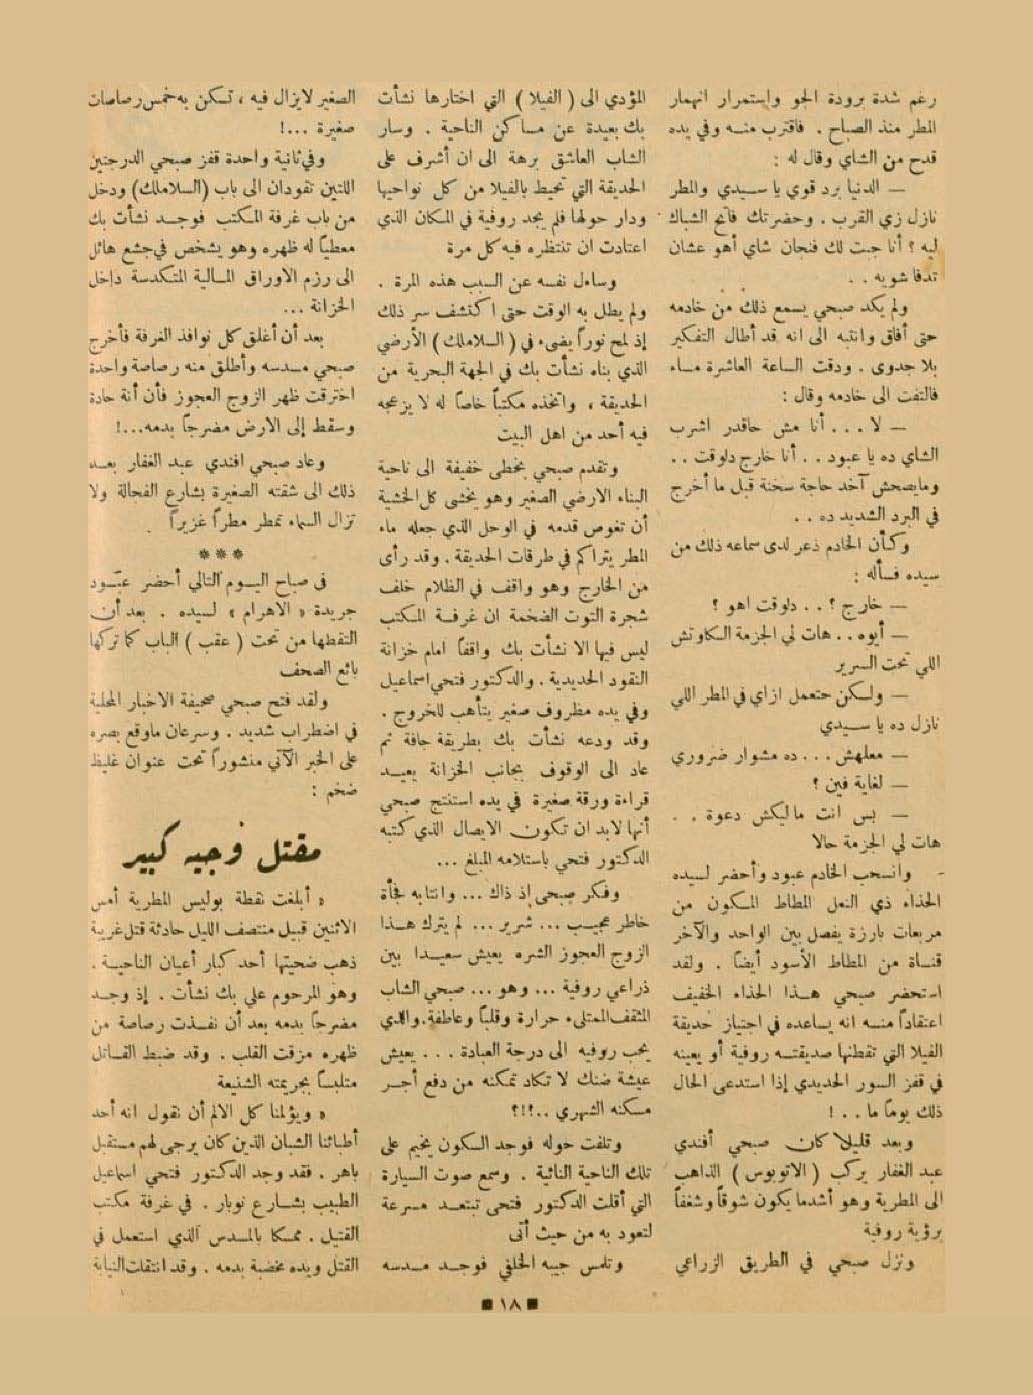 رغم شدة برودة الجو واستمرار انهمار
المطر منذ الصباح . فاقترب منه وفي يده
قدح من الشاي وقال له :
— الدنيا برد قوي يا سيدي والمطر
نازل زي القرب . وحضرتك فاتح الشباك
ليه ؟ أنا جبت لك فنجان شاي أهو عشان
تدفا شويه . .
ولم يكد صبحي يسمع ذلك من خادمه
حتى أفاق وانتبه الى انه قد أطال التفكير
بلا جدوى . ودقت الساعة العاشرة مساء
فالتفت الى خادمه وقال :
— لا . . . أنا مش حاقدر اشرب
الشاي ده يا عبود . . أنا خارج دلوقت . .
ومايصحش آخد حاجة سخنة قبل ما أخرج
في البرد الشديد ده . .
وكأن الخادم ذعر لدى سماعه ذلك من
سيده فسأله :
— خارج ؟ . . دلوقت اهو ؟
— أيوه . . هات لي الجزمة الكاوتش
اللي تحت السرير
— ولكن حتعمل ازاي في المطر اللي
نازل ده يا سيدي
— معلهش . . . ده مشوار ضروري
— لغاية فين ؟
— بس انت مالكش دعوة . .
هات لي الجزمة حالا
وانسحب الخادم عبود وأحضر لسيده
الحذاء ذي النعل المطاط المكون من
مربعات بارزة يفصل بين الواحد والآخر
قناة من المطاط الأسود أيضاً . ولقد
استحضر صبحي هذا الحذاء الخفيف
اعتقاداً منه انه يساعده في اجتياز حديقة
الفيلا التي تقطنها صديقته روفية أو يعينه
في قفز السور الحديدي إذا استدعى الحال
ذلك يوماً ما . . !
وبعد قليلا كان صبحي أفندي
عبد الغفار يركب ( الاتوبوس ) الذاهب
الى المطرية وهو أشدما يكون شوقاً وشغفاً
برؤية روفية
ونزل صبحي في الطريق الزراعي
المؤدي الى ( الفيلا ) التي اختارها نشأت
بك بعيدة عن مساكن الناحية . وسار
الشاب العاشق برهة الى ان أشرف على
الحديقة التي تحيط بالفيلا من كل نواحيها
ودار حولها فلم يجد روفية في المكان الذي
اعتادت ان تنتظره فيه كل مرة
وساءل نفسه عن السبب هذه المرة .
ولم يطل به الوقت حتى اكتشف سر ذلك
إذ لمح نوراً يضىء في ( السلاملك ) الأرضي
الذي بناه نشأت بك في الجهة البحرية من
الحديقة ، واتخذه مكتباً خاصاً له لا يزعجه
فيه أحد من اهل البيت
وتقدم صبحي بخطى خفيفة الى ناحية
البناء الارضي الصغير وهو يخشى كل الخشية
أن تغوص قدمه في الوحل الذي جعله ماء
المطر يتراكم في طرقات الحديقة . وقد رأى
من الخارج وهو واقف في الظلام خلف
شجرة التوت الضخمة ان غرفة المكتب
ليس فيها الا نشأت بك واقفاً امام خزانة
النقود الحديدية . والدكتور فتحي اسماعيل
وفي يده مظروف صغير يتأهب للخروج .
وقد ودعه نشأت بك بطريقة جافة ثم
عاد الى الوقوف بجانب الخزانة يعيد
قراءة ورقة صغيرة في يده استنتج صبحي
أنها لابد ان تكون الايصال الذي كتبه
الدكتور فتحي باستلامه المبلغ ...
وفكر صبحي إذ ذاك ... وانتابه فجأة
خاطر عجيب ... شرير ... لم يترك هذا
الزوج العجوز الشره يعيش سعيدا بين
ذراعي روفية ... وهو ... صبحي الشاب
المثقف الممتلىء حرارة وقلباً وعاطفة . والذي
يحب روفيه الى درجة العبادة ... يعيش
عيشة ضنك لا تكاد تمكنه من دفع أجر
مسكنه الشهري ..؟!؟
وتلفت حوله فوجد السكون يخيم على
تلك الناحية النائية . وسمع صوت السيارة
التي أقلت الدكتور فتحى تبتعد مسرعة
لتعود به من حيث أتى
وتلمس جيبه الخلفي فوجد مسدسه
الصغير لايزال فيه ، تسكن به خمس رصاصات
صغيرة ...!
وفي ثانية واحدة قفز صبحي الدرجتين
اللتين تقودان الى باب (السلاملك) ودخل
من باب غرفة المكتب فوجد نشأت بك
معطياً له ظهره وهو يشخص في جشع هائل
الى رزم الاوراق المالية المتكدسة داخل
الخزانة ...
بعد أن أغلق كل نوافذ الغرفة فأخرج
صبحي مسدسه وأطلق منه رصاصة واحدة
اخترقت ظهر الزوج العجوز فأن أنة حادة
وسقط إلى الارض مضرجاً بدمه...!
وعاد صبحي افندي عبد الغفار بعد
ذلك الى شقته الصغيرة بشارع الفجالة ولا
تزال السماء تمطر مطراً غزيراً
***
فى صباح اليوم التالي أحضر عبّود
جريدة « الاهرام » لسيده . بعد أن
التقطها من تحت ( عقب ) الباب كما تركها
بائع الصحف
ولقد فتح صبحي صحيفة الاخبار المحلية
في اضطراب شديد . وسرعان ماوقع بصره
على الخبر الآتي منشوراً تحت عنوان غليظ
ضخم :
مقتل وجيه كبير
« أبلغت نقطة بوليس المطرية أمس
الاثنين قبيل منتصف الليل حادثة قتل غريبة
ذهب ضحيتها أحد كبار أعيان الناحية .
وهو المرحوم علي بك نشأت . إذ وجد
مضرجاً بدمه بعد أن نفذت رصاصة من
ظهره مزقت القلب . وقد ضبط القاتل
متلبساً بجريمته الشنيعة
« ويؤلمنا كل الالم أن نقول انه أحد
أطبائنا الشبان الذين كان يرجى لهم مستقبل
باهر . فقد وجد الدكتور فتحي اسماعيل
الطبيب بشارع نوبار . في غرفة مكتب
القتيل . ممسكا بالمسدس الذي استعمل في
القتل ويده مخضبة بدمه . وقد انتقلت النيابة
■ ١٨ ■